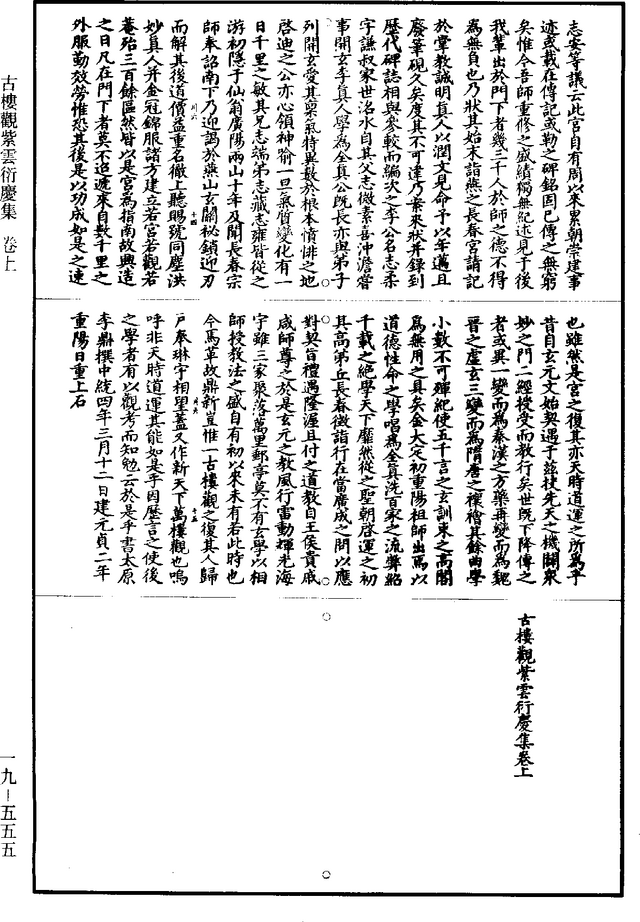 志安等議云此宮自有周以來累朝崇建事
迹或載在傳記或勒之碑銘固已傳之無窮
矣惟今吾師重修之盛績獨無紀述見于後
我輩出於門下者幾三千人於師之德不得
為無負也乃狀其始末詣燕之長春宮請記
於掌教誠明真人以潤文見命予以年邁且
廢筆硯久矣度其不可違乃案來狀并録到
歷代碑誌相與參較而編次之李公名志柔
字謙叔家世洺水自其父志微素喜沖澹嘗
事開玄李真人學為全真公既長亦與弟子
列開玄愛其稟氣特異數於根本憤悱之地
啓迪之公亦心領神喻一旦氣質變化有一
日千里之敏其兄志端弟志藏志雍皆從之
游初隱于仙翁廣陽兩山十年及聞長春宗
師奉詔南下乃迎謁於燕山玄關秘鎖迎刃
而解其後道價益重名徹上聽賜號同塵洪
妙真人并金冠錦服諸方建立若宮若觀若
菴殆三百餘區然皆以是宮為指南故興造
之日凡在門下者莫不追遞來自數千里之
外服勤效勞惟恐其後是以功成如是之速
也雖然是宮之復其亦天時道運之所為乎
昔自玄元文始契遇于茲抉先天之機關衆
妙之門二經授受而教行矣世既下降傳之
者或異一變而為秦漢之方藥再變而為魏
晉之虛玄三變而為隋唐之禳禬其餘曲學
小數不可殫紀使五千言之玄訓束之高閣
為無用之具矣金大定初重陽祖師出焉以
道德性命之學唱為全真洗百家之流弊紹
千載之絶學天下靡然從之聖朝啓運之初
其高弟丘長春徵詣行在當廣成之問以應
對契旨禮遇隆渥且付之道教自王侯貴戚
咸師尊之於是玄元之教風行雷動輝光海
宇雖三家聚落萬里郵亭莫不有玄學以相
師授教法之盛自有初以來未有若此時也
今焉革故鼎新豈惟一古樓觀之復其人歸
戶奉琳宇相望蓋又作新天下萬樓觀也嗚
呼非天時道運其能如是乎因歷言之使後
之學者有以觀考而知勉云於是乎書太原
李鼎撰中統四年三月十二日建元貞二年
重陽日重上石
古樓觀紫雲衍慶集卷上
古樓觀紫雲衍慶集 卷上
一九－五五五